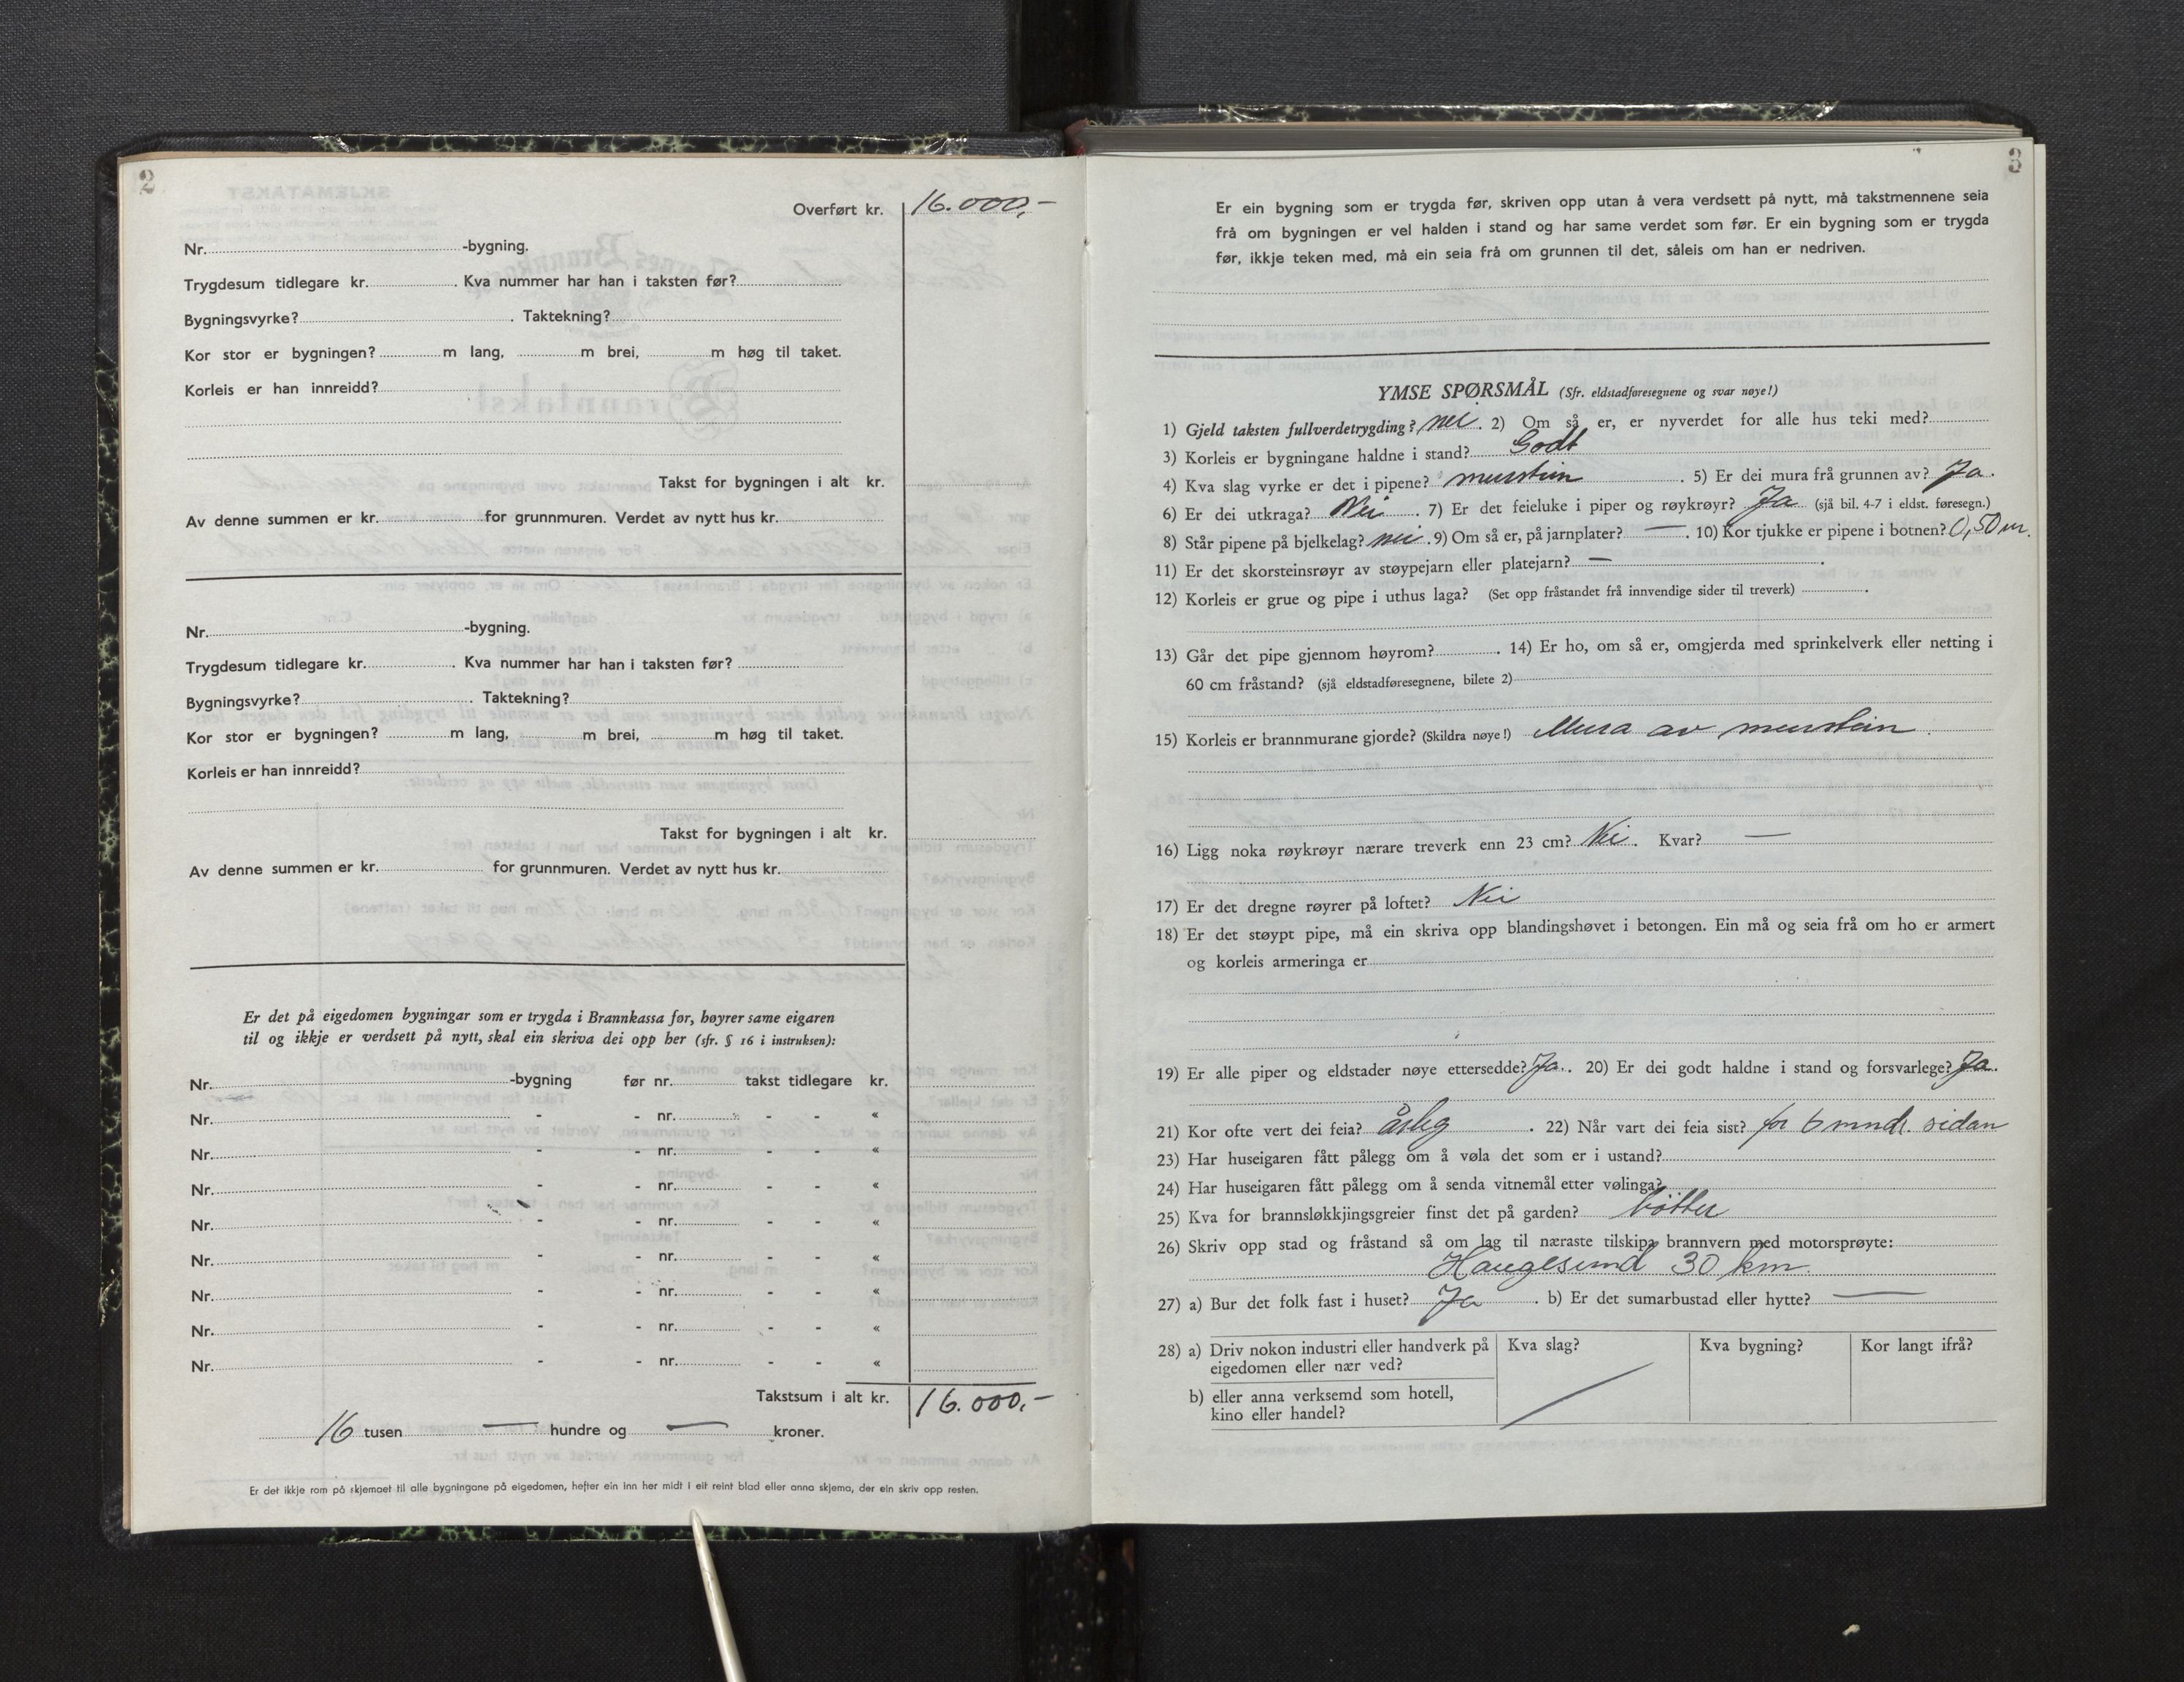 2
Overført kr. 16.000,-
Nr. -bygning.
Trygdesum tidlegare kr. . Kva nummer har han i taksten før?
Bygningsvyrke? . Taktekning?
Kor stor er bygningen? m lang, m brei, m høg til taket.
Korleis er han innreidd?
Takst for bygningen i alt kr.
Av denne summen er kr. for grunnmuren. Verdet av nytt hus kr.
Nr. -bygning.
Trygdesum tidlegare kr. . Kva nummer har han i taksten før?
Bygningsvyrke? . Taktekning?
Kor stor er bygningen? m lang, m brei, m høg til taket.
Korleis er han innreidd?
Takst for bygningen i alt kr.
Av denne summen er kr. for grunnmuren. Verdet av nytt hus kr.
Er det på eigedomen bygningar som er trygda i Brannkassa før, høyrer same eigaren
til og ikkje er verdsett på nytt, skal ein skriva dei opp her (sfr. § 16 i instruksen):
Nr. -bygning før nr. takst tidlegare kr.
Nr. - - nr. - - «
Nr. - - nr. - - «
Nr. - - nr. - - «
Nr. - - nr. - - «
Nr. - - nr. - - «
Nr. - - nr. - - «
Nr. - - nr. - - «
Nr. - - nr. - - «
Takstsum i alt kr. 16.000,-
16 tusen — hundre og — kroner.
Er det ikkje rom på skjemaet til alle bygningane på eigedomen, hefter ein inn her midt i eit reint blad eller anna skjema, der ein skriv opp resten.
3
Er ein bygning som er trygda før, skriven opp utan å vera verdsett på nytt, må takstmennene seia
frå om bygningen er vel halden i stand og har same verdet som før. Er ein bygning som er trygda
før, ikkje teken med, må ein seia frå om grunnen til det, såleis om han er nedriven.
YMSE SPØRSMÅL (Sfr. eldstadføresegnene og svar nøye!)
1) Gjeld taksten fullverdetrygding? nei. 2) Om så er, er nyverdet for alle hus teki med?
3) Korleis er bygningane haldne i stand? Godt
4) Kva slag vyrke er det i pipene? murstein . 5) Er dei mura frå grunnen av? Ja.
6) Er dei utkraga? Nei . 7) Er det feieluke i piper og røykrøyr? Ja (sjå bil. 4-7 i eldst. føresegn.)
8) Står pipene på bjelkelag? nei . 9) Om så er, på jarnplater? — . 10) Kor tjukke er pipene i botnen? 0,50 m.
11) Er det skorsteinsrøyr av støypejarn eller platejarn? — .
12) Korleis er grue og pipe i uthus laga? (Set opp fråstandet frå innvendige sider til treverk) .
13) Går det pipe gjennom høyrom? . 14) Er ho, om så er, omgjerda med sprinkelverk eller netting i
60 cm fråstand? (sjå eldstadføresegnene, bilete 2)
15) Korleis er brannmurane gjorde? (Skildra nøye!) Mura av murstein.
16) Ligg noka røykrøyr nærare treverk enn 23 cm? Nei. Kvar? —
17) Er det dregne røyrer på loftet? Nei
18) Er det støypt pipe, må ein skriva opp blandingshøvet i betongen. Ein må og seia frå om ho er armert
og korleis armeringa er
19) Er alle piper og eldstader nøye ettersedde? Ja. 20) Er dei godt haldne i stand og forsvarlege? Ja.
21) Kor ofte vert dei feia? årleg . 22) Når vart dei feia sist? for 6 mndr. sidan
23) Har huseigaren fått pålegg om å vøla det som er i ustand?
24) Har huseigaren fått pålegg om å senda vitnemål etter vølinga?
25) Kva for brannsløkkjingsgreier finst det på garden? bøtter
26) Skriv opp stad og fråstand så om lag til næraste tilskipa brannvern med motorsprøyte:
Haugesund 30 km.
27) a) Bur det folk fast i huset? Ja . b) Er det sumarbustad eller hytte? —
28) a) Driv nokon industri eller handverk på eigedomen eller nær ved? Kva slag? Kva bygning? Kor langt ifrå?
b) eller anna verksemd som hotell,
kino eller handel?